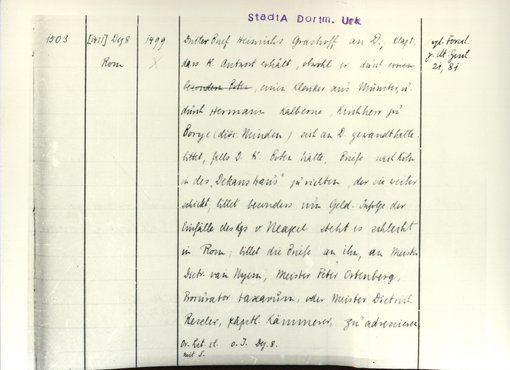 StadtA Dortm. Urk.
1503
[1411] Dez 8
Rom
1499
X
Dritter Brief Heinrichs Grashoff an D., klagt,
dass K. Antwort erhält, obwohl er durch einen
besondern Boten, einen Kleriker aus Münster, u.
durch Hermann Kalberne, Kirchherr zu
(diöz. Minden) sich an D. gewandt hatte.
bittet, falls D. K. Boten hätte, Briefe nach Köln
in des „Dekanshaus" zu richten, der sie weiter
schickt, bittet besonders um Geld. Infolge der
Einfälle des Kgs v. Neapel steht es schlecht
in Rom; bittet die Briefe an ihn, an Meister
Dietr. van Nyem, Meister Peter Ortenberg,
Procurator taxarum, oder Meister Dietrich
Reseler, päpstl. Kämmerer, zu adressieren.
Or. Dez. 8.
mit S.
vgl. Forsch.
z. dt. Gesch.
21, 81